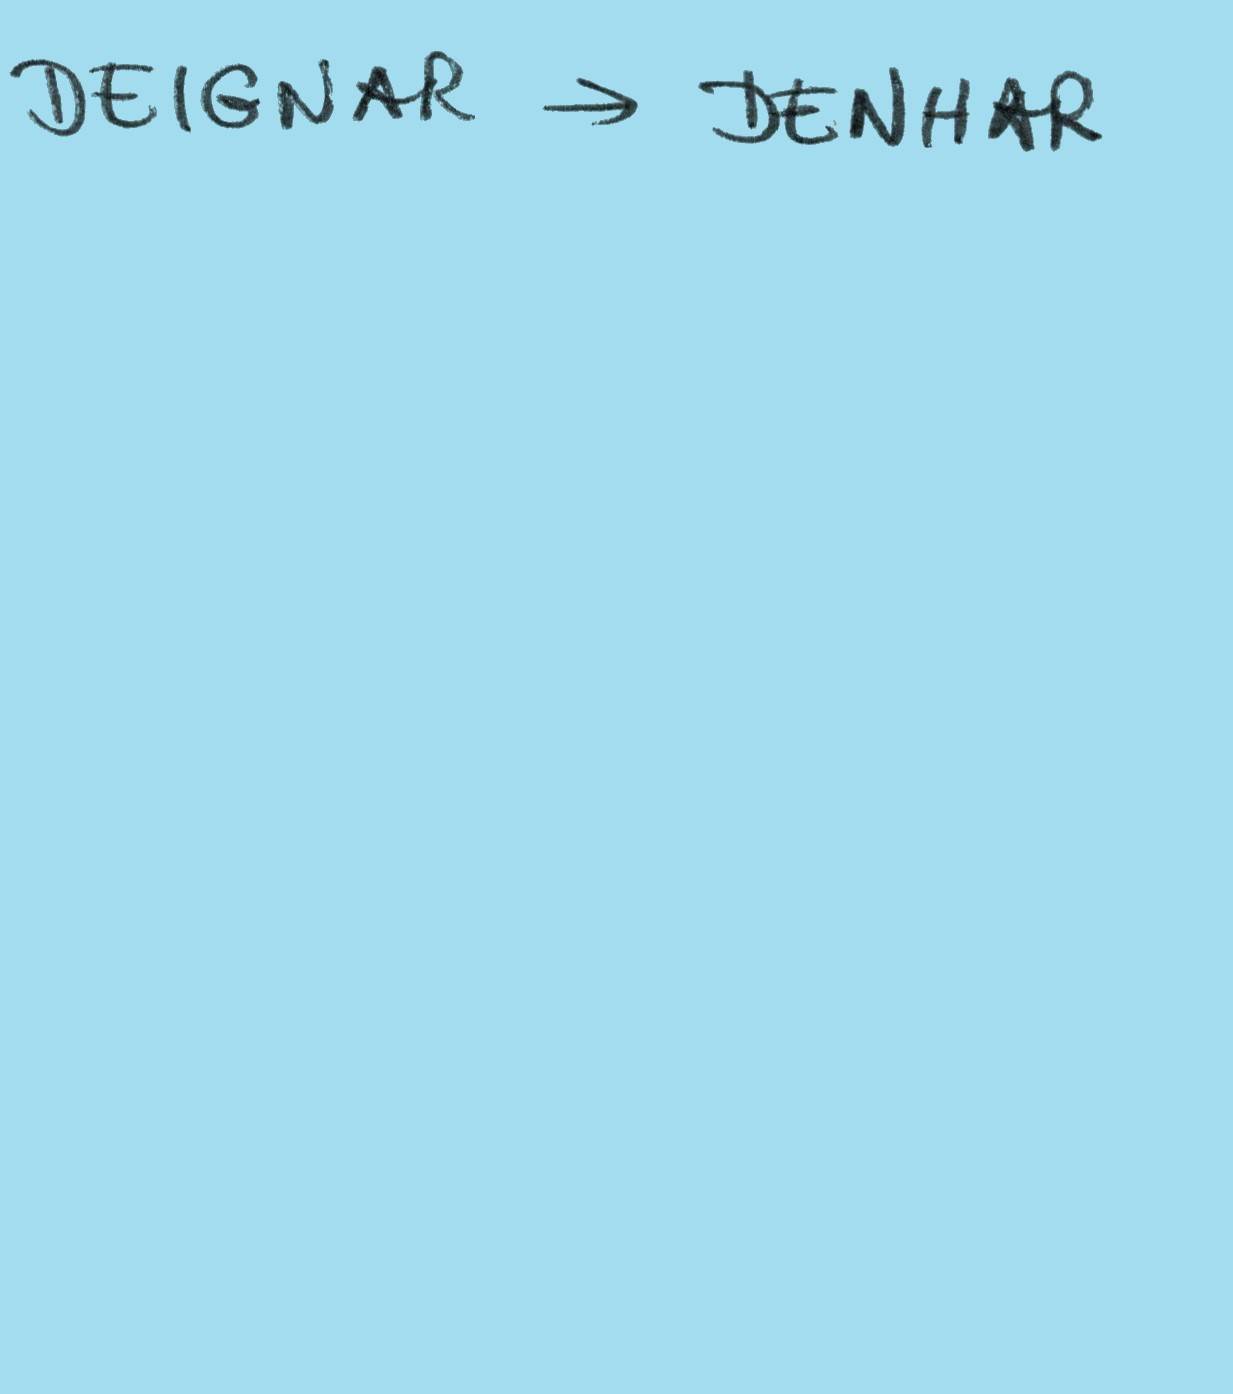 DEIGNAR → DENHAR